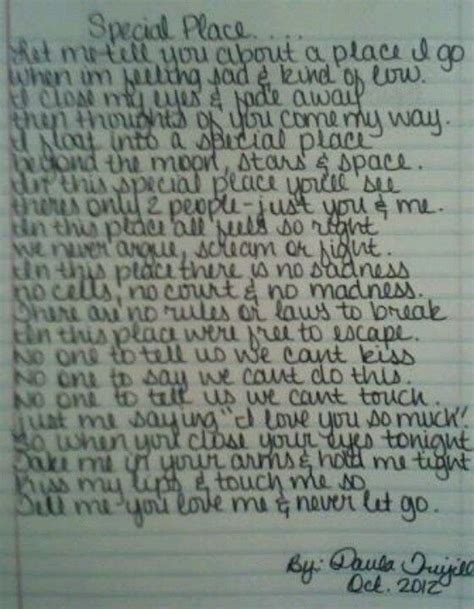 Special Place....
Let me tell you about a place I go
when im feeling sad & kind of low.
I close my eyes & fade away
then thoughts of you come my way.
I float into a special place
beyond the moon, stars & space.
In this special place youll see
theres only 2 people-just you & me.
In this place all feels so right
we never argue, scream or fight.
In this place there is no sadness
no cells, no court & no madness.
There are no rules or laws to break
In this place were free to escape.
No one to tell us we cant kiss
No one to say we cant do this.
No one to tell us we cant touch.
just me saying "I love you so much".
So when you close your eyes tonight
Take me in your arms & hold me tight
Kiss my lips & touch me so
Tell me-you love me & never let go.
By: Paula Trujill
Oct. 2012